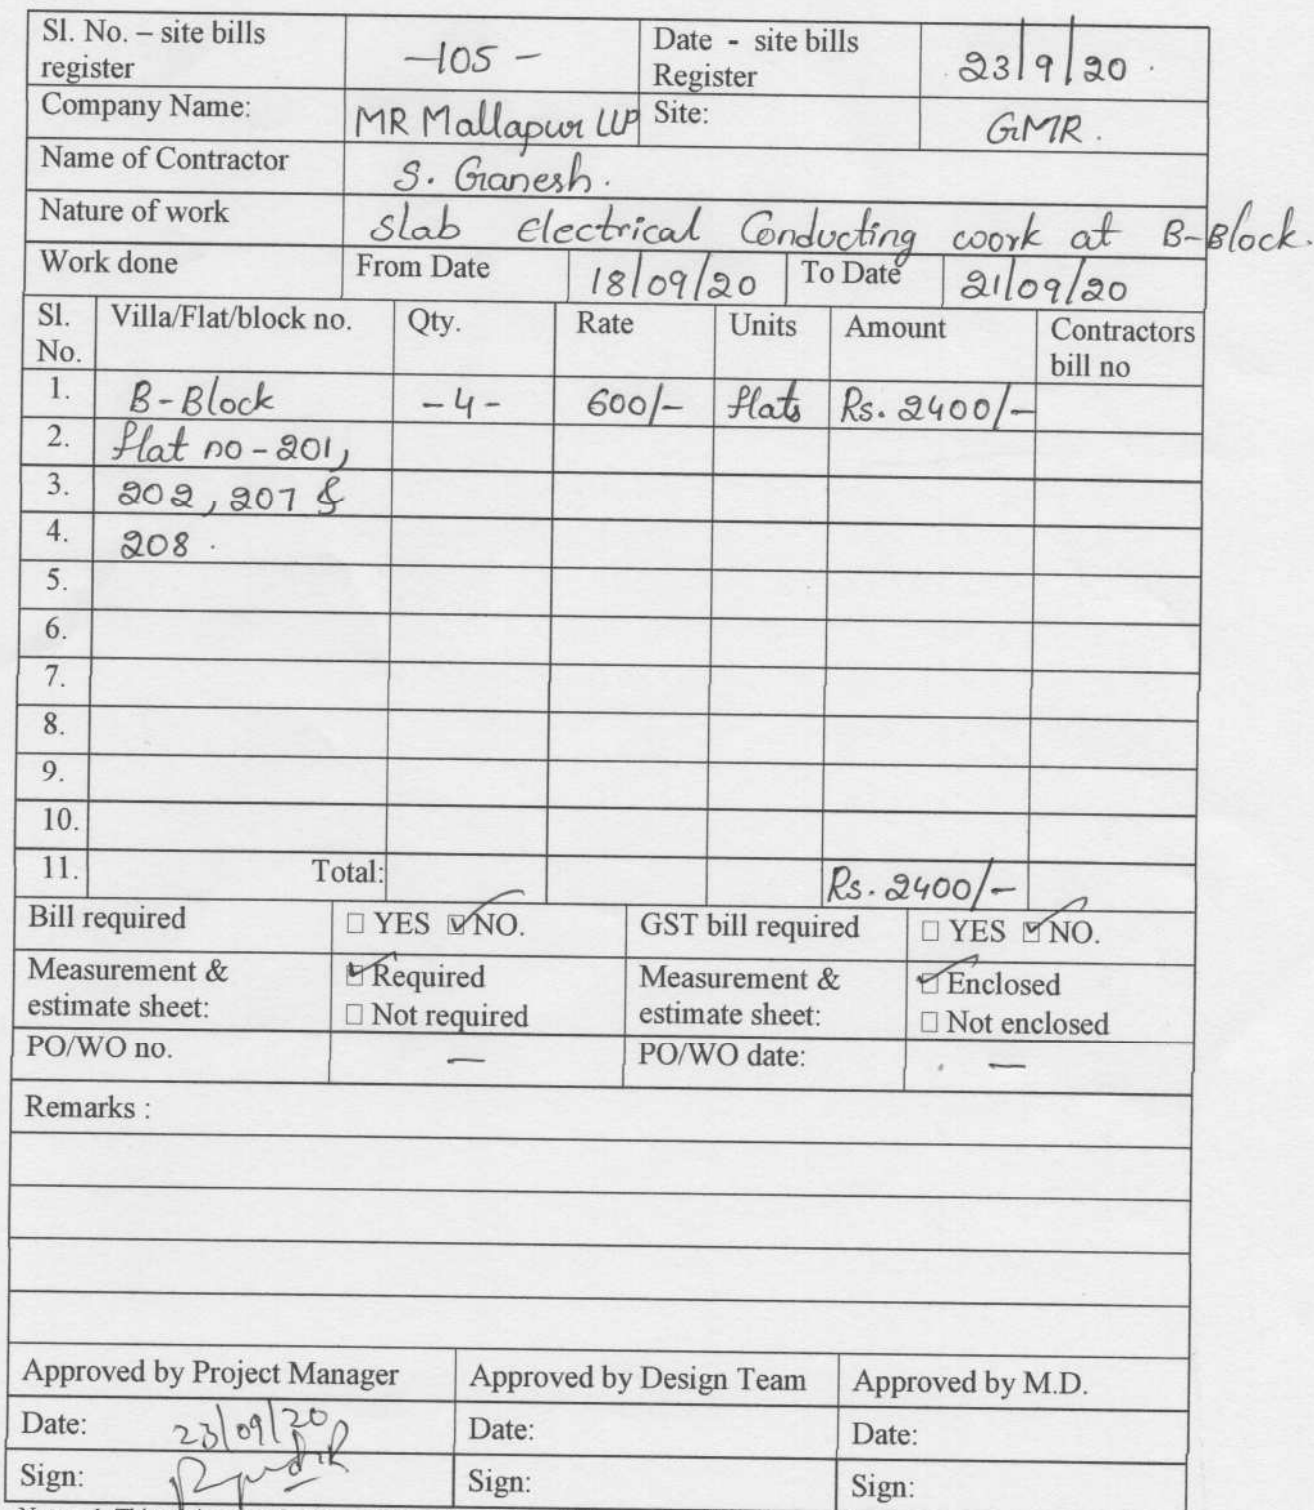 Sl. No. – site bills register -105- Date - site bills Register 23/9/20.
Company Name: MR Mallapur LLP Site: GMR.
Name of Contractor S. Ganesh.
Nature of work slab electrical Conducting work at B-Block.
Work done From Date 18/09/20 To Date 21/09/20
Sl. No. Villa/Flat/block no. Qty. Rate Units Amount Contractors bill no
1. B-Block -4- 600/- flats Rs. 2400/-
2. flat no-201,
3. 202, 207 &
4. 208.
5.
6.
7.
8.
9.
10.
11. Total: Rs. 2400/-
Bill required □ YES ☑ NO. GST bill required □ YES ☑ NO.
Measurement & estimate sheet: ☑ Required □ Not required Measurement & estimate sheet: ☑ Enclosed □ Not enclosed
PO/WO no. — PO/WO date: —
Remarks :
Approved by Project Manager Approved by Design Team Approved by M.D.
Date: 23/09/20 Date: Date:
Sign: Sign: Sign: